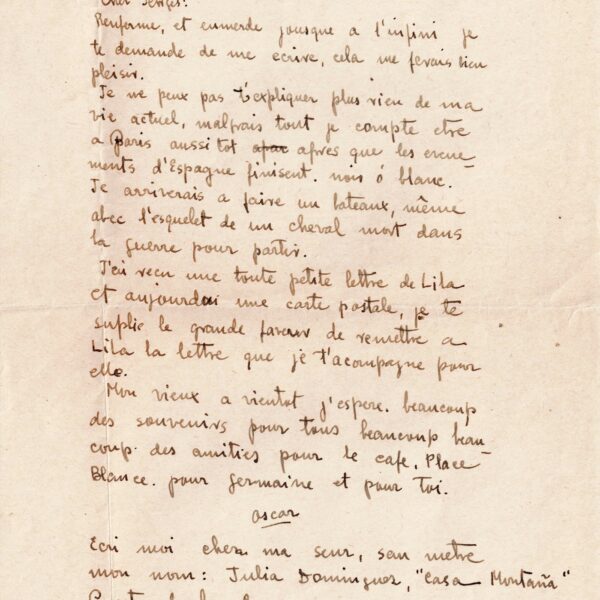 Renferme, et enmerde jousque a l'infini je
te demande de me ecrive, cela me ferais bien
pleisir.
Je ne peux pas t'expliquer plus rien de ma
vie actuel, malfrais tout je compte etre
a Paris aussi tot apac afres que les ereue-
ments d'Espagne finisent. nois ó blanc.
Je arriverais a faire un bateaux, même
abec l'esquelet de un cheval mort dans
la guerre pour partir.
J'ai recu une toute petite lettre de Lila
et aujourdoui une carte postale, je te
suplie le grande faveur de remettre a
Lila la lettre que je t'acompagne pour
elle.
Mon vieux a vientot j'espere. beaucoup
des souvenirs pour tous beaucoup beau-
coup des amities pour le cafe, Place
Blance. pour germaine et pour toi.
oscar
Ecri moi chez ma seur, san metre
mon nom: Julia Dominguez, "Casa Montaña"